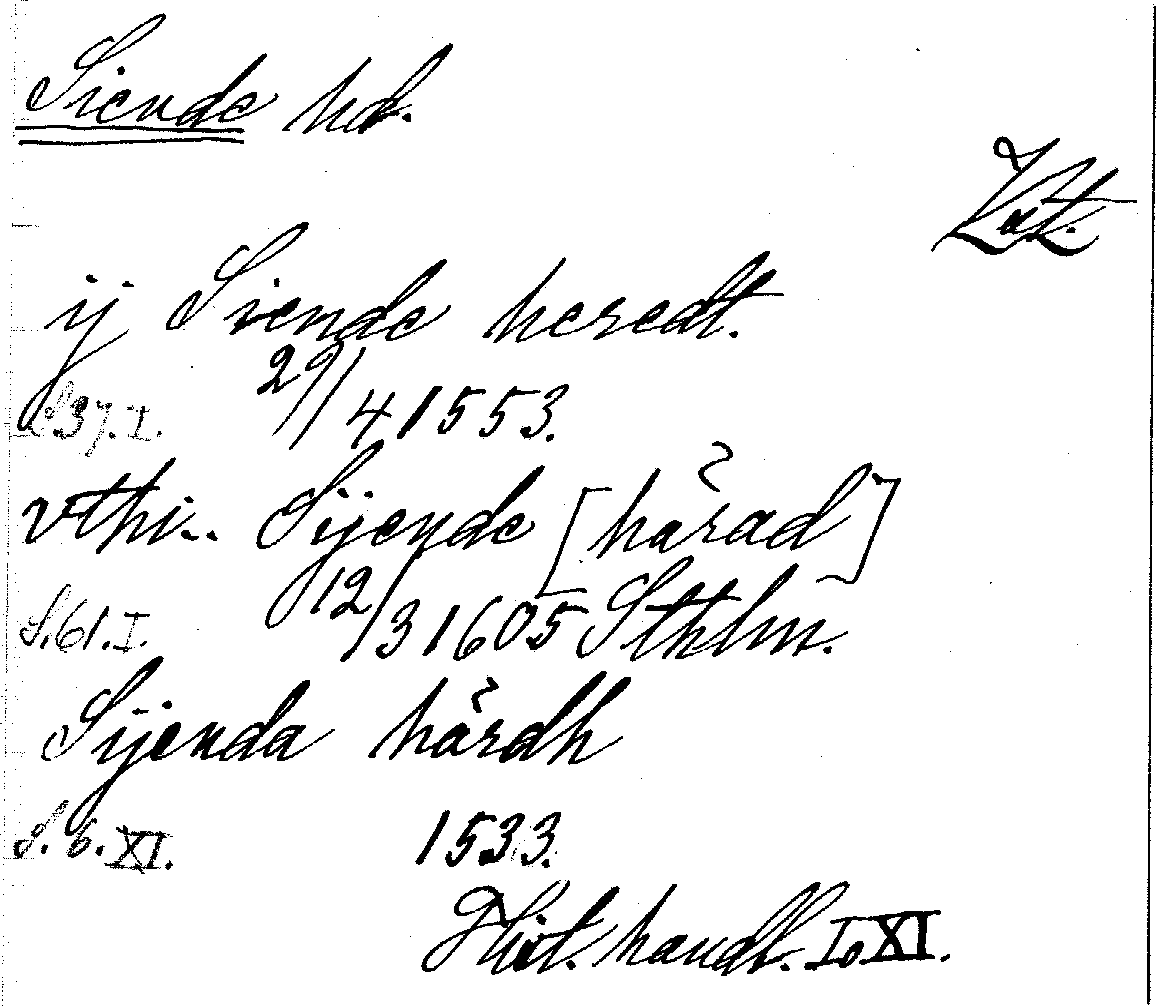 Siende hd.
Vstm.
ij Siende heredt.
S. 37. I. 29/4 1553.
vthi.. Sijende [härad]
S. 61. I. 12/3 1605 Sthlm.
Sijenda härdh
S. 6. XI. 1533.
Hist. handl. I o XI.